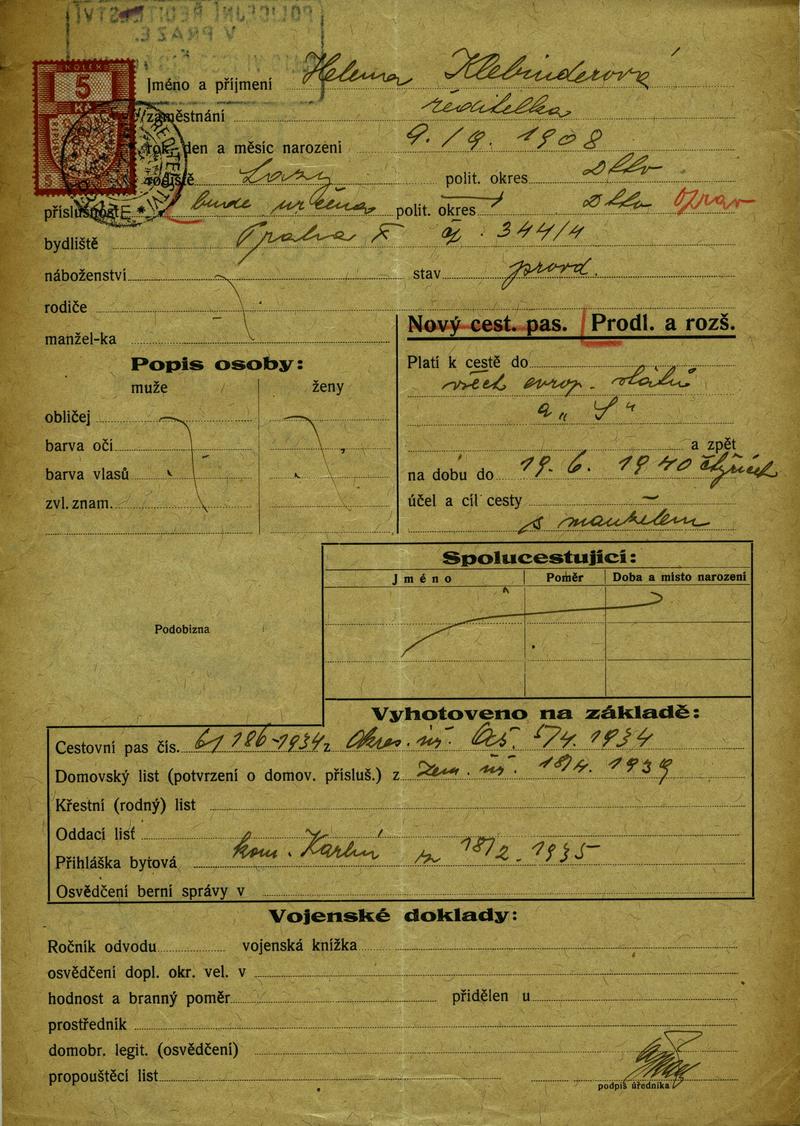 KOLEK
5
Kč
Jméno a příjmení Helena Klebinderová
zaměstnání ředitelka
rok, den a měsíc narození 9./9. 1908
rodiště polit. okres
příslušnost E. bude určena polit. okres
bydliště Praha X čj. 344/4
náboženství stav provd.
rodiče
manžel-ka
Nový cest. pas. Prodl. a rozš.
Popis osoby:
muže ženy
obličej
barva očí
barva vlasů
zvl. znam.
Platí k cestě do
všech evrop. států
a „S“
a zpět
na dobu do 19. 6. 1940
účel a cíl cesty —
s manželem
Spolucestující:
Jméno Poměr Doba a místo narození
Podobizna
Vyhotoveno na základě:
Cestovní pas čís. 186-1934 z Okres. úř. 1934
Domovský list (potvrzení o domov. přísluš.) z Zem. úř. 1939
Křestní (rodný) list
Oddací list
Přihláška bytová kom. Karlín 18/2. 1935
Osvědčení berní správy v
Vojenské doklady:
Ročník odvodu vojenská knížka
osvědčení dopl. okr. vel. v
hodnost a branný poměr přidělen u
prostředník
domobr. legit. (osvědčení)
propouštěcí list
podpis úředníka